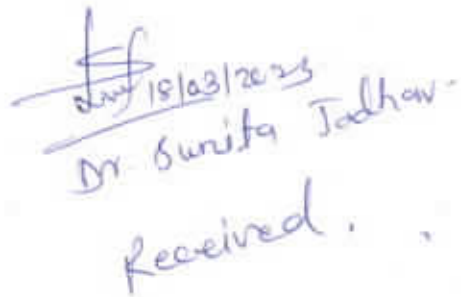 18/03/2023
Dr. Sunita Jadhav.
Received.